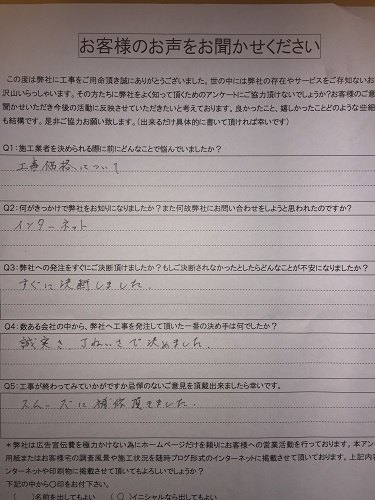 お客様のお声をお聞かせください
この度は弊社に工事をご用命頂き誠にありがとうございました。世の中には弊社の存在やサービスをご存知ないお
沢山いらっしゃいます。その方たちに弊社をよく知って頂くためのアンケートにご協力頂けないでしょうか?お客様のご意
聞かせいただき今後の活動に反映させていただきたいと考えております。良かったこと、嬉しかったことどのような些細
も結構です。是非ご協力お願い致します。(出来るだけ具体的に書いて頂ければ幸いです)
Q1:施工業者を決められる際に前にどんなことで悩んでいましたか?
工事価格について
Q2:何がきっかけで弊社をお知りになりましたか?また何故弊社にお問い合わせをしようと思われたのですか?
インターネット
Q3:弊社への発注をすぐにご決断頂けましたか?もしご決断されなかったとしたらどんなことが不安になりましたか?
すぐに決断しました.
Q4:数ある会社の中から、弊社へ工事を発注して頂いた一番の決め手は何でしたか?
誠実さ、丁ねいさで決めました.
Q5:工事が終わってみていかがですか忌憚のないご意見を頂戴出来ましたら幸いです。
スムーズに補修頂きました.
*弊社は広告宣伝費を極力かけない為にホームページだけを頼りにお客様への営業活動を行っております。本アン
用紙またはお客様宅の調査風景や施工状況を随時ブログ形式のインターネットに掲載させて頂いております。上記内
ンターネットや印刷物に掲載させて頂いてもよろしいでしょうか?
下記の中から〇印をお付下さい。
( )名前を出してもよい (〇)イニシャルなら出してもよい